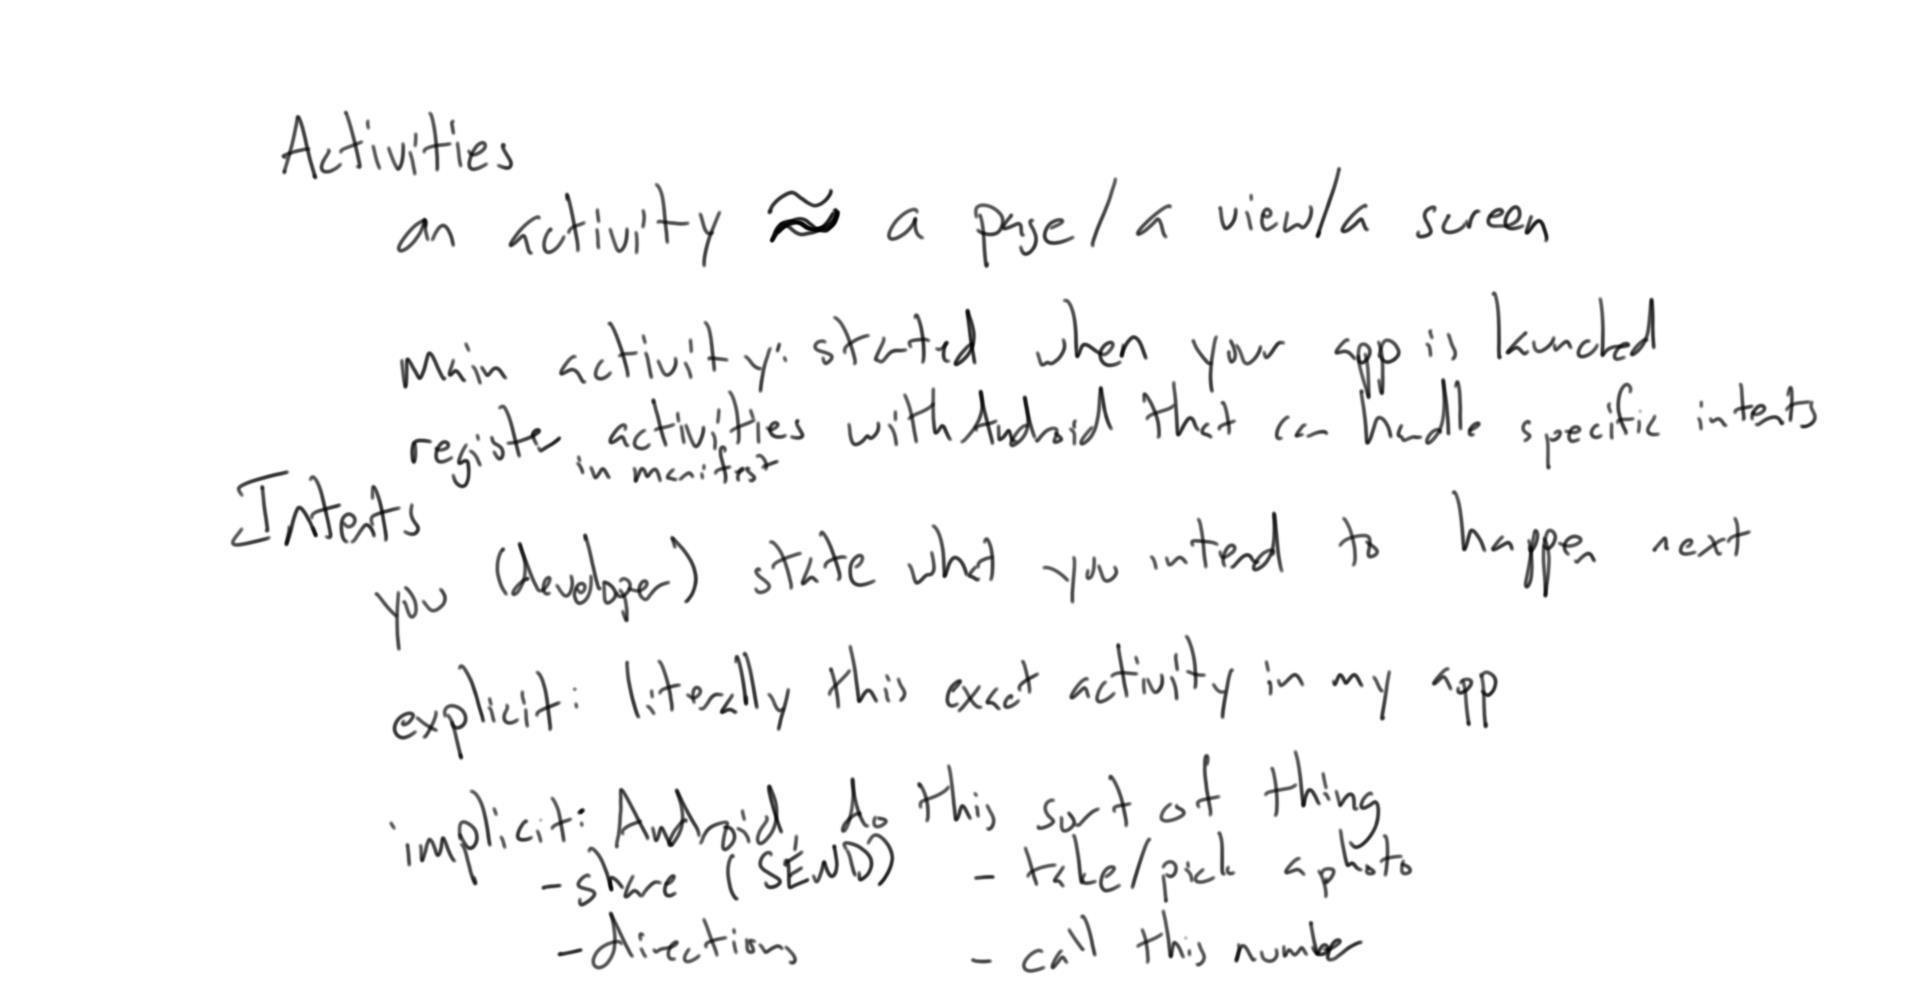 Activities
an activity ≈ a page/a view/a screen
Main activity: started when your app is launched
register activities with Android that can handle specific intents
in manifest
Intents
you (developer) state what you intend to happen next
explicit: literally this exact activity in my app
implicit: Android, do this sort of thing
- share (SEND) - take/pick a photo
- directions - call this number